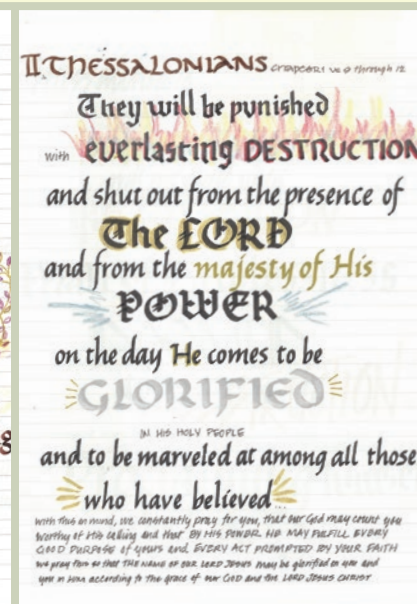 II THESSALONIANS CHAPTER 1 vs 9 through 12
They will be punished
with everlasting DESTRUCTION
and shut out from the presence of
The LORD
and from the majesty of His
POWER
on the day He comes to be
GLORIFIED
IN HIS HOLY PEOPLE
and to be marveled at among all those
who have believed
with this in mind, we constantly pray for you, that our God may count you
worthy of His calling and that BY HIS POWER HE MAY FULFILL EVERY
GOOD PURPOSE of yours and EVERY ACT PROMPTED BY YOUR FAITH
we pray this so that THE NAME OF OUR LORD JESUS may be glorified in you and
you in Him according to the grace of our GOD and the LORD JESUS CHRIST